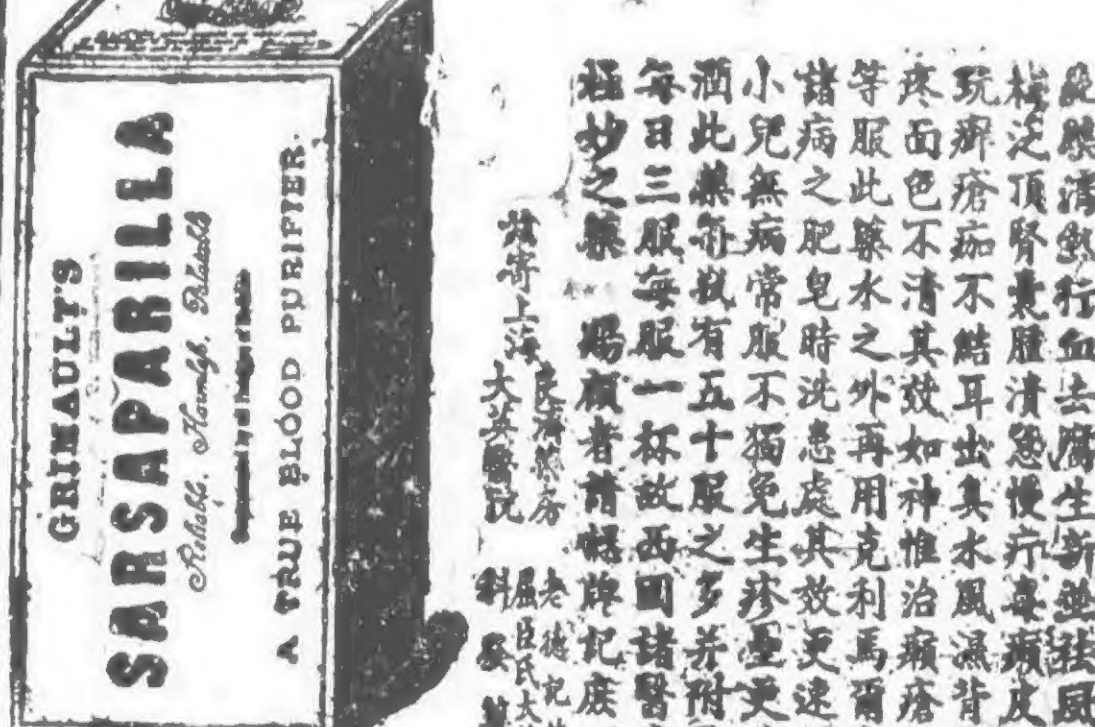 GRIMAULT'S
SARSAPARILLA
Reliable, Harmless, Palatable
A TRUE BLOOD PURIFIER.
清熱行血去腐生新並祛風
泛頂腎囊腫潰慢疔毒癩皮
玩癬瘡痂不結耳出臭水風濕背
疼面色不清其效如神惟治癩瘡
等服此藥水之外再用克利馬爾
諸病之肥皂時洗患處其效更速
小兒無病常服不獨免生疹更
酒此藥每瓶有五十服之多并附
每日三服每服一杯故西國諸醫
極妙之藥 賜顧者請牌記
寄上海
大英醫院
老德記
屈臣氏大